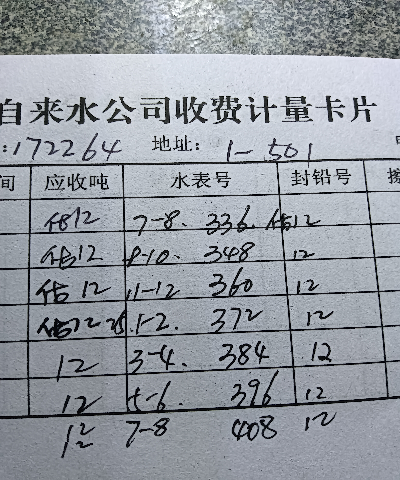 自来水公司收费计量卡片
:172264 地址: 1-501
间 应收吨 水表号 封铅号
估12 7-8. 336. 估12
估12 9-10. 348 12
估12 11-12 360 12
估12 1-2. 372 12
12 3-4. 384 12
12 5-6. 396 12
12 7-8 408 12